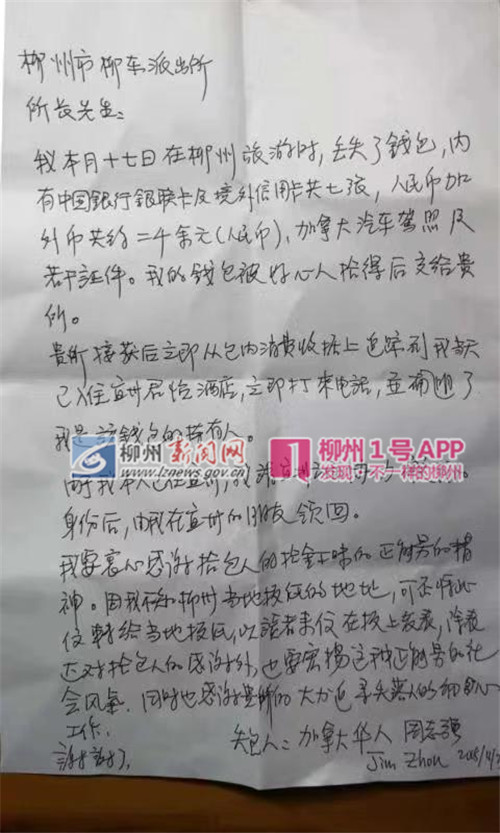 柳州市柳东派出所
所长先生：
我本月十七日在柳州旅游时，丢失了钱包，内
有中国银行银联卡及境外信用卡共七张，人民币加
外币共约二千余元(人民币)，加拿大汽车驾照及
若干証件。我的钱包被好心人拾得后交给贵
所。
贵所接获后立即从包内消费收据上追踪到我当天
已入住宜州君怡酒店，立即打来电话，并确明了
我是该钱包的拥有人。
柳州新闻网
www.lznews.gov.cn
柳州1号APP
发现不一样的柳州
由于我本人已在宜州，我
身份后，由我在宜州的朋友领回。
我要衷心感谢拾包人的拾金不昧的正能号的精
神。因我不知柳州当地报纸的地址，可否将此
信转给当地报纸，以読者来信在报上发表，除表
达对拾包人的感谢外，也要宏扬这种正能号的社
会风气．同时也感谢贵所的大力追寻失落人的细心
工作．
謝謝了
失包人：加拿大华人 周志强
Jim Zhou